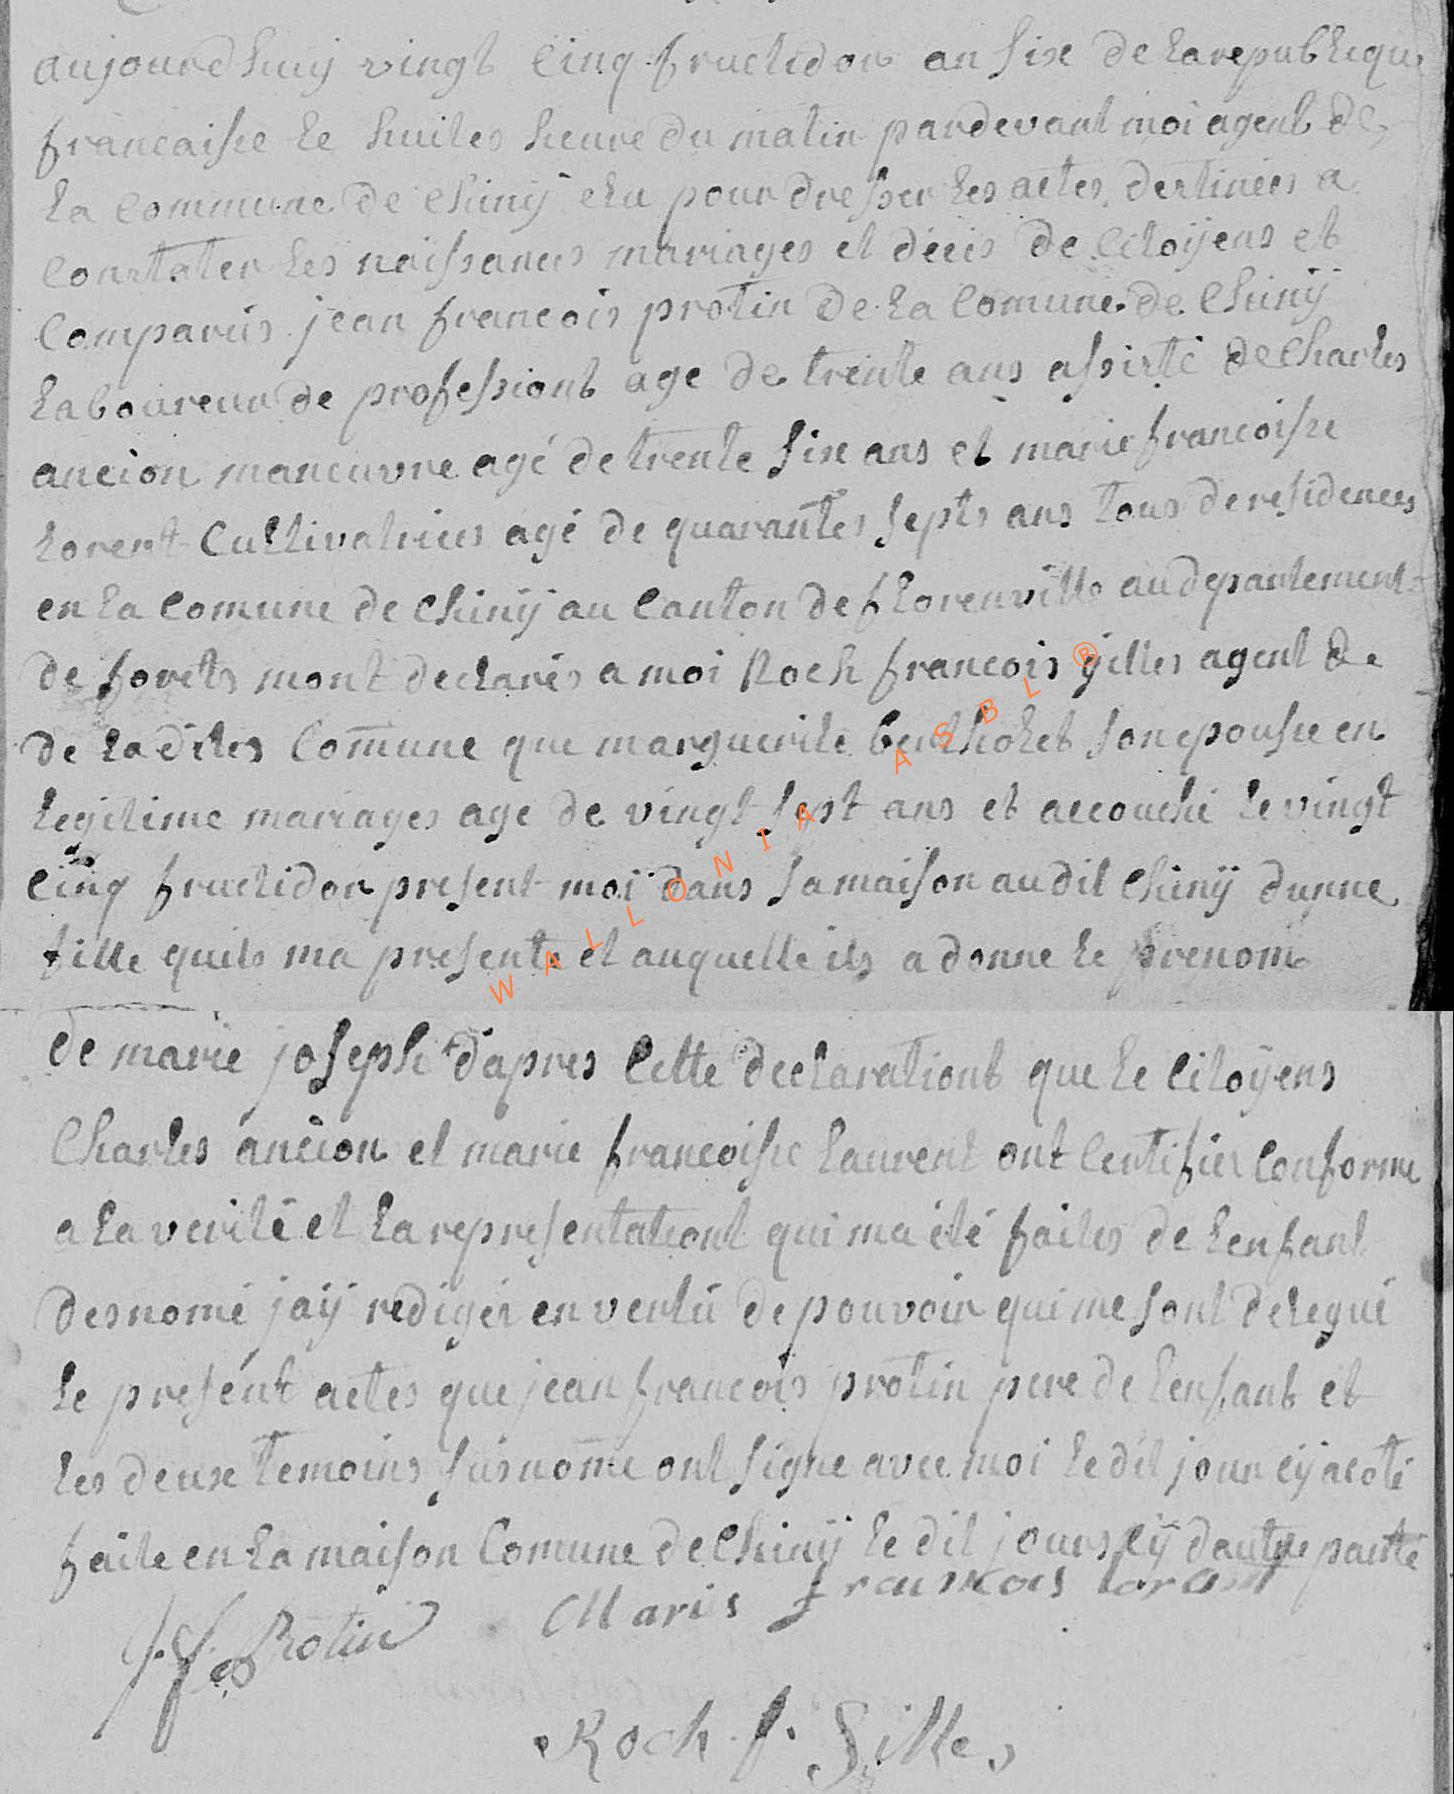 aujourdhuij vingt Cinq fructidor an sixe de la republique
francaisee le huites heure du matin pardevant moi agent de
la Commune de Chinij elu pour dresser les actes destinées a
Constater les naissances mariages et décès de Citoijens et
Comparus jean francois protin de la Comune de Chinij
laboureur de professiont age de trente ans assisté de Charles
ancion maneuvre agé de trente sixe ans et marie francoisse
lorent Cultivatrices agé de quarantes septs ans tous de residences
en la Comune de Chinij au Canton de florenville au departement
de forets mont declarés a moi Roch francois gilles agent de
de la dites Comune que marguerite bertholet son epousee en
legitime mariages age de vingt sept ans et accouché le vingt
Cinq fructidor present moi dans sa maison au dit Chinij dunne
fille quils ma presente et auquelle ils a donne le prenom
de marie joseph dapres Cette declarationt que le Citoijens
Charles ancion et marie francoise laurent ont Certifier Conforme
a la verité et la representationt qui ma été faites de lenfant
desnomé jaij rediger en vertu de pouvoir qui me sont delegué
le present actes que jean francois protin pere de lenfant et
les deuxe temoins susnome ont signe avec moi le dit jour cij acoté
faite en la maison Comune de Chinij le dit jours cij dautre parte
Maris franscois lorant
J f Protin
Roch f. Gilles
WALLONIA ASBL ®